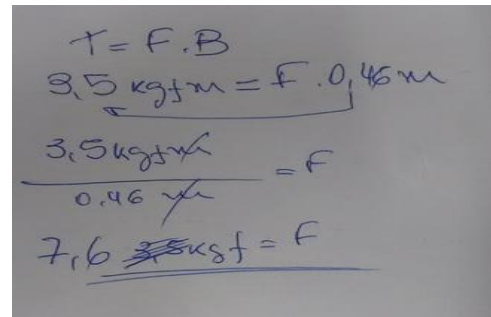 T = F.B
3,5 kgfm = F.0,46m
3,5kgfm
= F
0.46 m
7,6 kgf = F